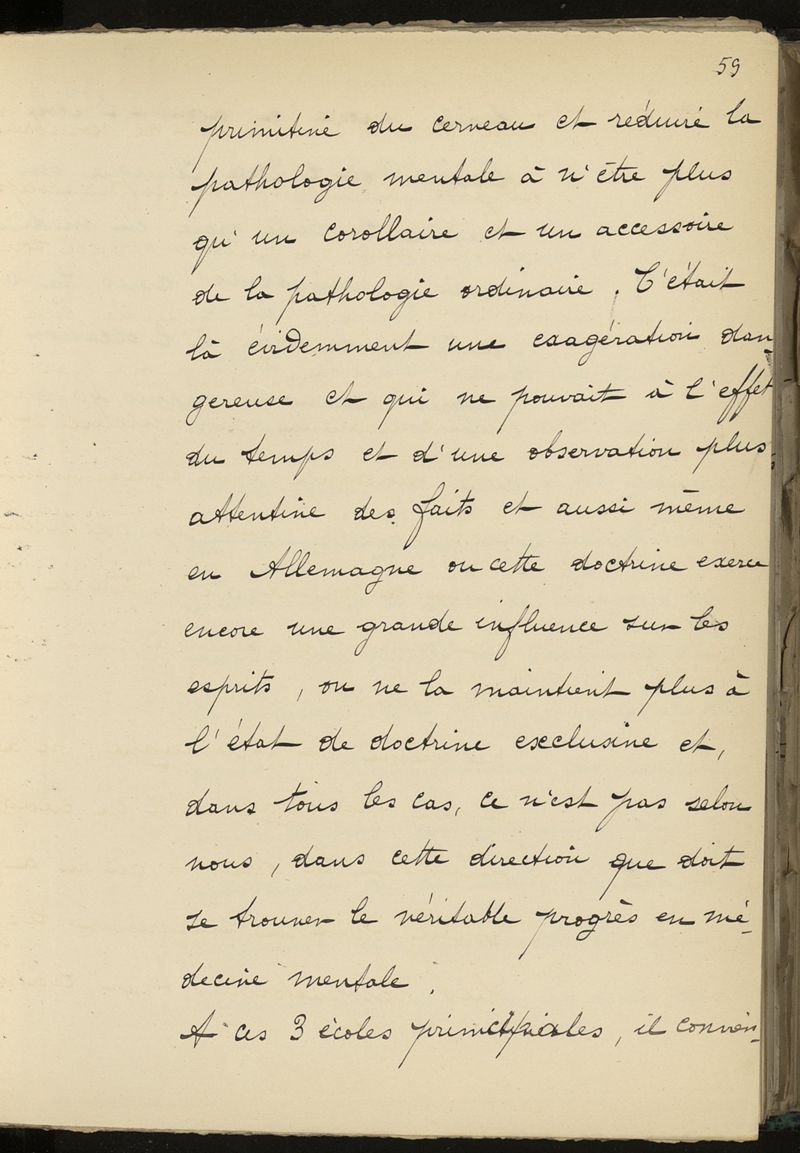 59
primitive du cerveau et réduire la
pathologie mentale à n'être plus
qu'un corollaire et un accessoire
de la pathologie ordinaire. C'était
là évidemment une exagération dan-
gereuse et qui ne pouvait à l'effet
du temps et d'une observation plus
attentive des faits et aussi même
en Allemagne ou cette doctrine exerce
encore une grande influence sur les
esprits, on ne la maintient plus à
l'état de doctrine exclusive et,
dans tous les cas, ce n'est pas selon
nous, dans cette direction que doit
se trouver le véritable progrès en mé-
decine mentale.
A ces 3 écoles principales, il convien-